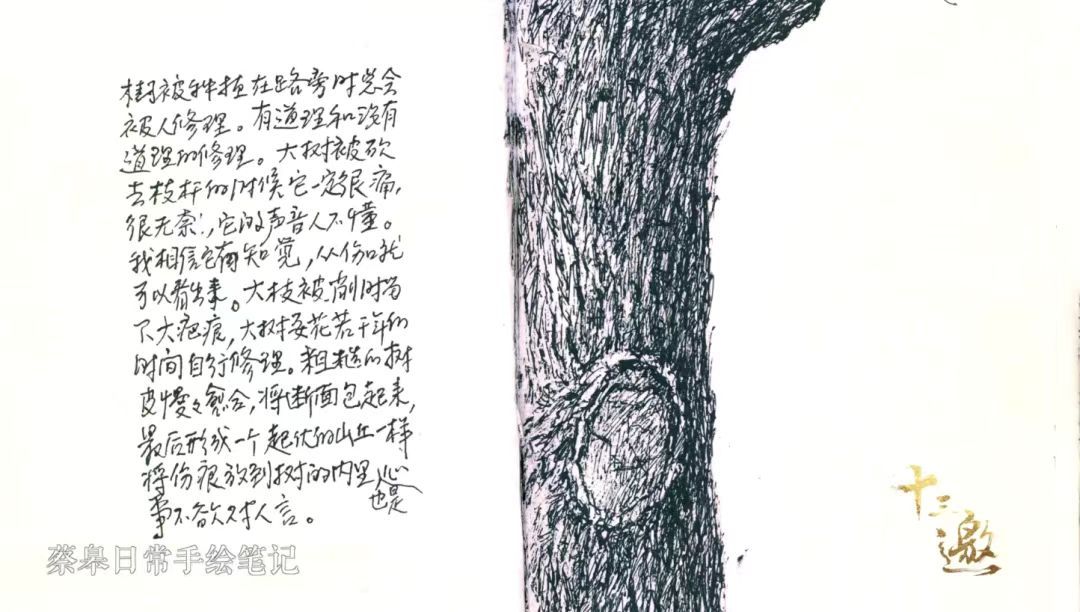 树被种植在路旁时总会
被人修理。有道理和没有
道理的修理。大树被砍
去枝杆的时候它一定很痛,
很无奈,它的声音人不懂。
我相信它有知觉,从伤口就
可以看出来。大枝被削时留
下大疤痕,大树要花若干年的
时间自行修理。粗糙的树
皮慢慢愈合,将断面包起来,
最后形成一个起伏的山丘一样
将伤痕放到树的内里 也是心
事不欲对人言。
蔡皋日常手绘笔记
十三邀